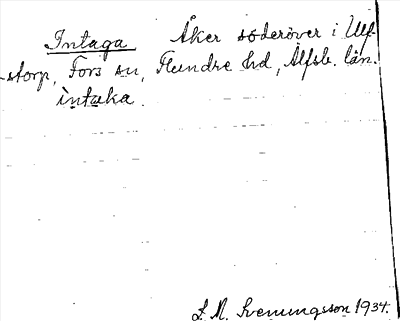 Intaga Åker söderöver i Ulf-
storp, Fors sn, Flundre hd, Älfsb. län.
ìntaka.
L. M. Svenungsson 1934.